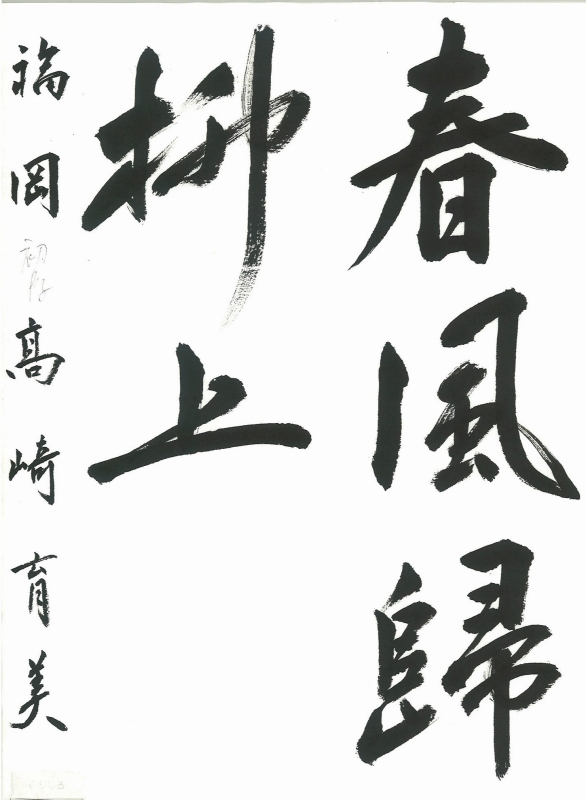 春風歸
柳上
福岡 初段 高崎育美